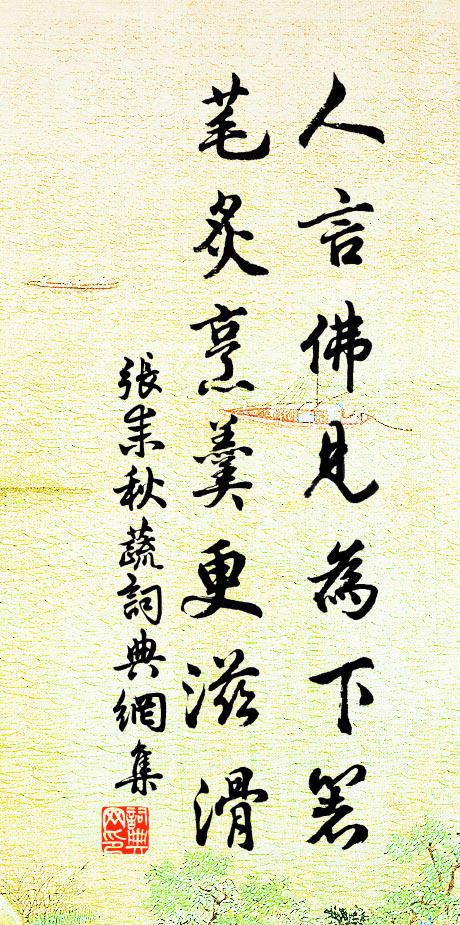 人言佛見為下箸
芼炙烹羹更滋滑
張耒秋蔬詞典網集
詞典網印